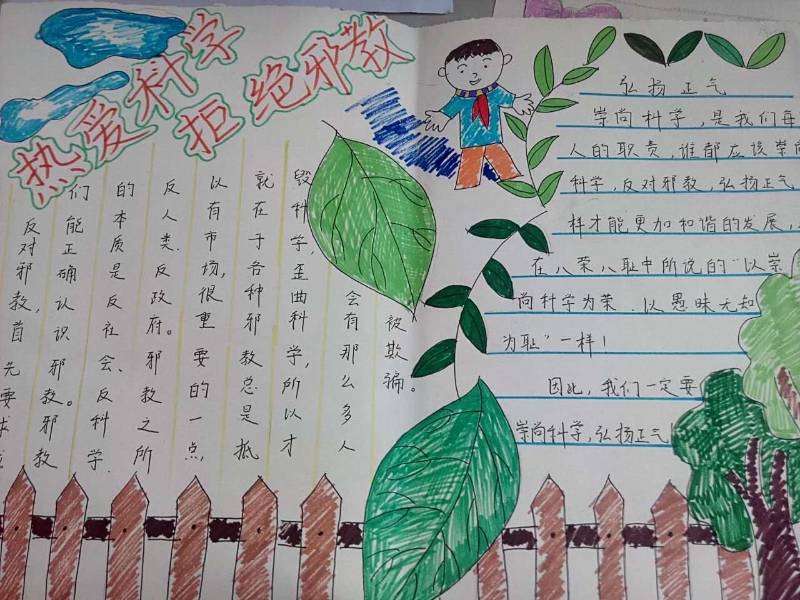 热爱科学
拒绝邪教
反对邪教,首先要求
们能正确认识邪教。邪教
的本质是反社会、反科学.
反人类.反政府。邪教之所
以有市场,很重要的一点,
就在于各种邪教总是抵
毁科学,歪曲科学,所以才
会有那么多人
被欺骗。
弘扬正气
崇尚科学,是我们每
人的职责,谁都应该崇尚
科学,反对邪教,弘扬正气
样才能更加和谐的发展,
在八荣八耻中所说的“以崇
尚科学为荣.以愚昧无知
为耻”一样!
因此,我们一定要
崇尚科学,弘扬正气